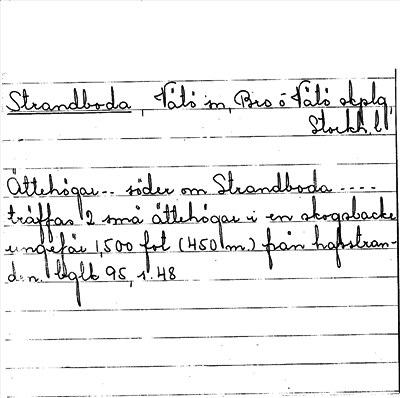 Strandboda, Vätö sn, Bro o Vätö skplg,
Stockh. l.
Ättehögar -- söder om Strandboda ----
träffas 2 små ättehögar i en skogsbacke
ungefär 1,500 fot (450 m.) från hafsstran-
den. bglb 95, s. 48